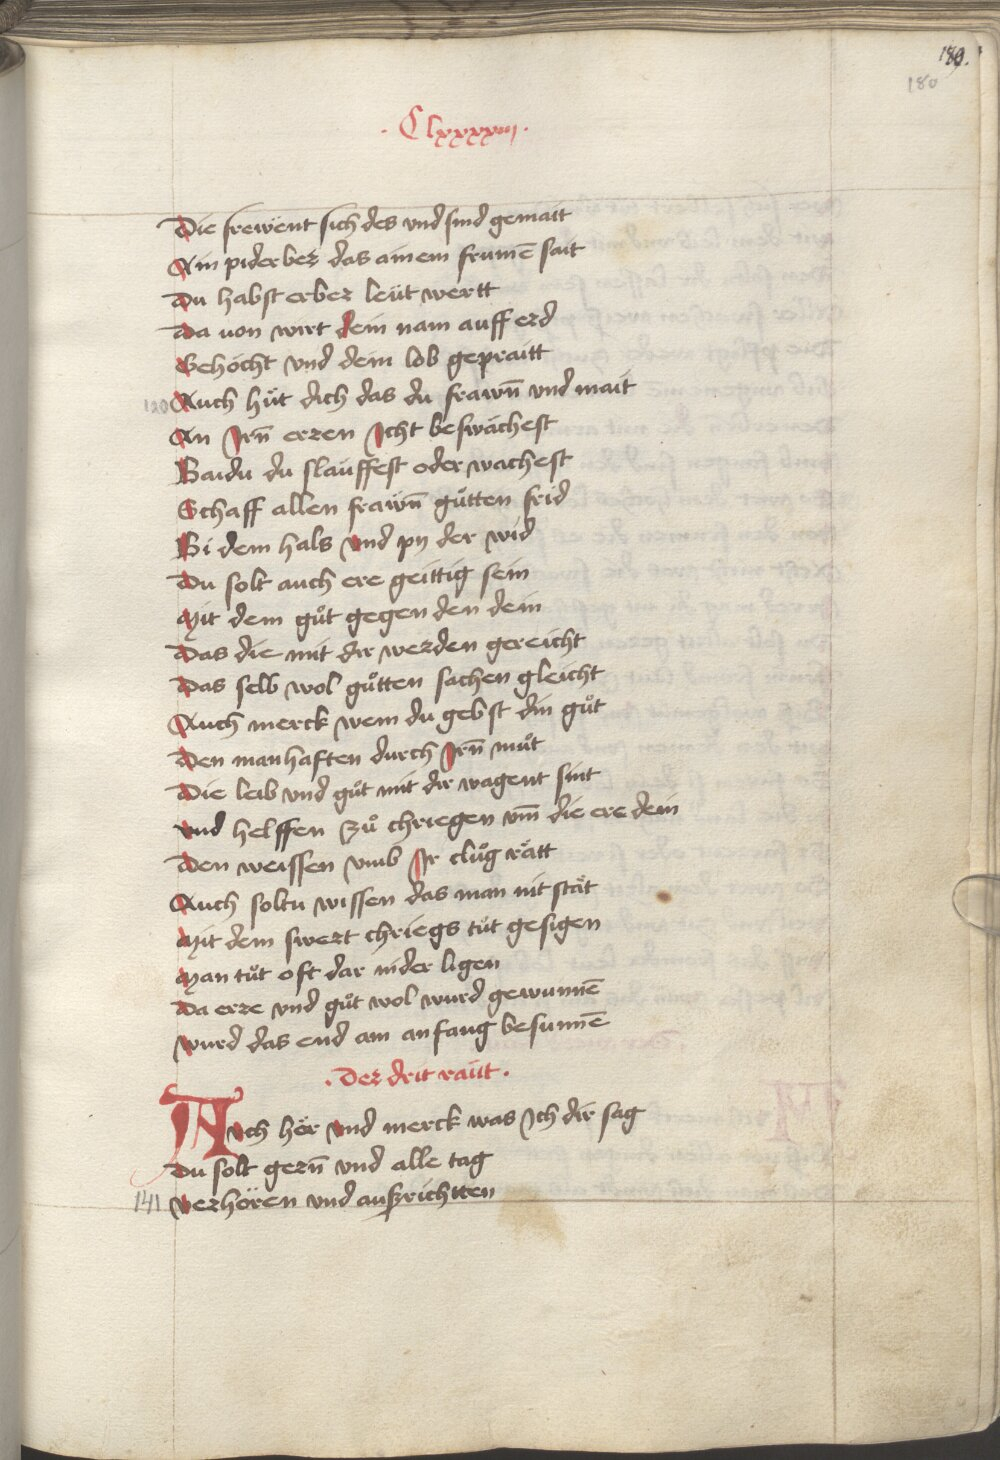 189.
180
· Clxxxxviiij ·
Die frewënt sich des vnd sind gemaitt
Ain piderber das ainem frumē sait
Du habst erber leüt wertt
Da uon wirt dein nam auff erd
Gehöcht vnd dem lob gepraitt
120 Auch hüt dich das du frawn̄ vnd mait
An Jrn̄ erzen Jcht beswächest
Baidu du slauffest oder wachest
Schaff allen frawn̄ gůtten frid
Bi dem hals vnd py der wid
Du solt auch ere geittig sein
Mit dem gůt gegen den dein
Das die mit dir werden gereicht
Das selb wol gůtten sachen gleicht
Auch merck wem du gebst din gůt
Den manhaften durch Jrn̄ můt
Die leib vnd gůt mit dir wagent sint
vnd helffen zů chriegen vm̄ die ere dein
Den weissen vmb Jr clůg rätt
Auch soltu wissen das man nit stät
Mit dem swert chriegs tůt gesigen
Man tůt oft dar nider ligen
Da erze vnd gůt wol wurd gewunnē
wurd das end am anfang besunnē
· Der drit raütt ·
Auch hör vnd merck was Jch dir sag
Du solt gern̄ vnd alle tag
141 verhören vnd außrichtten